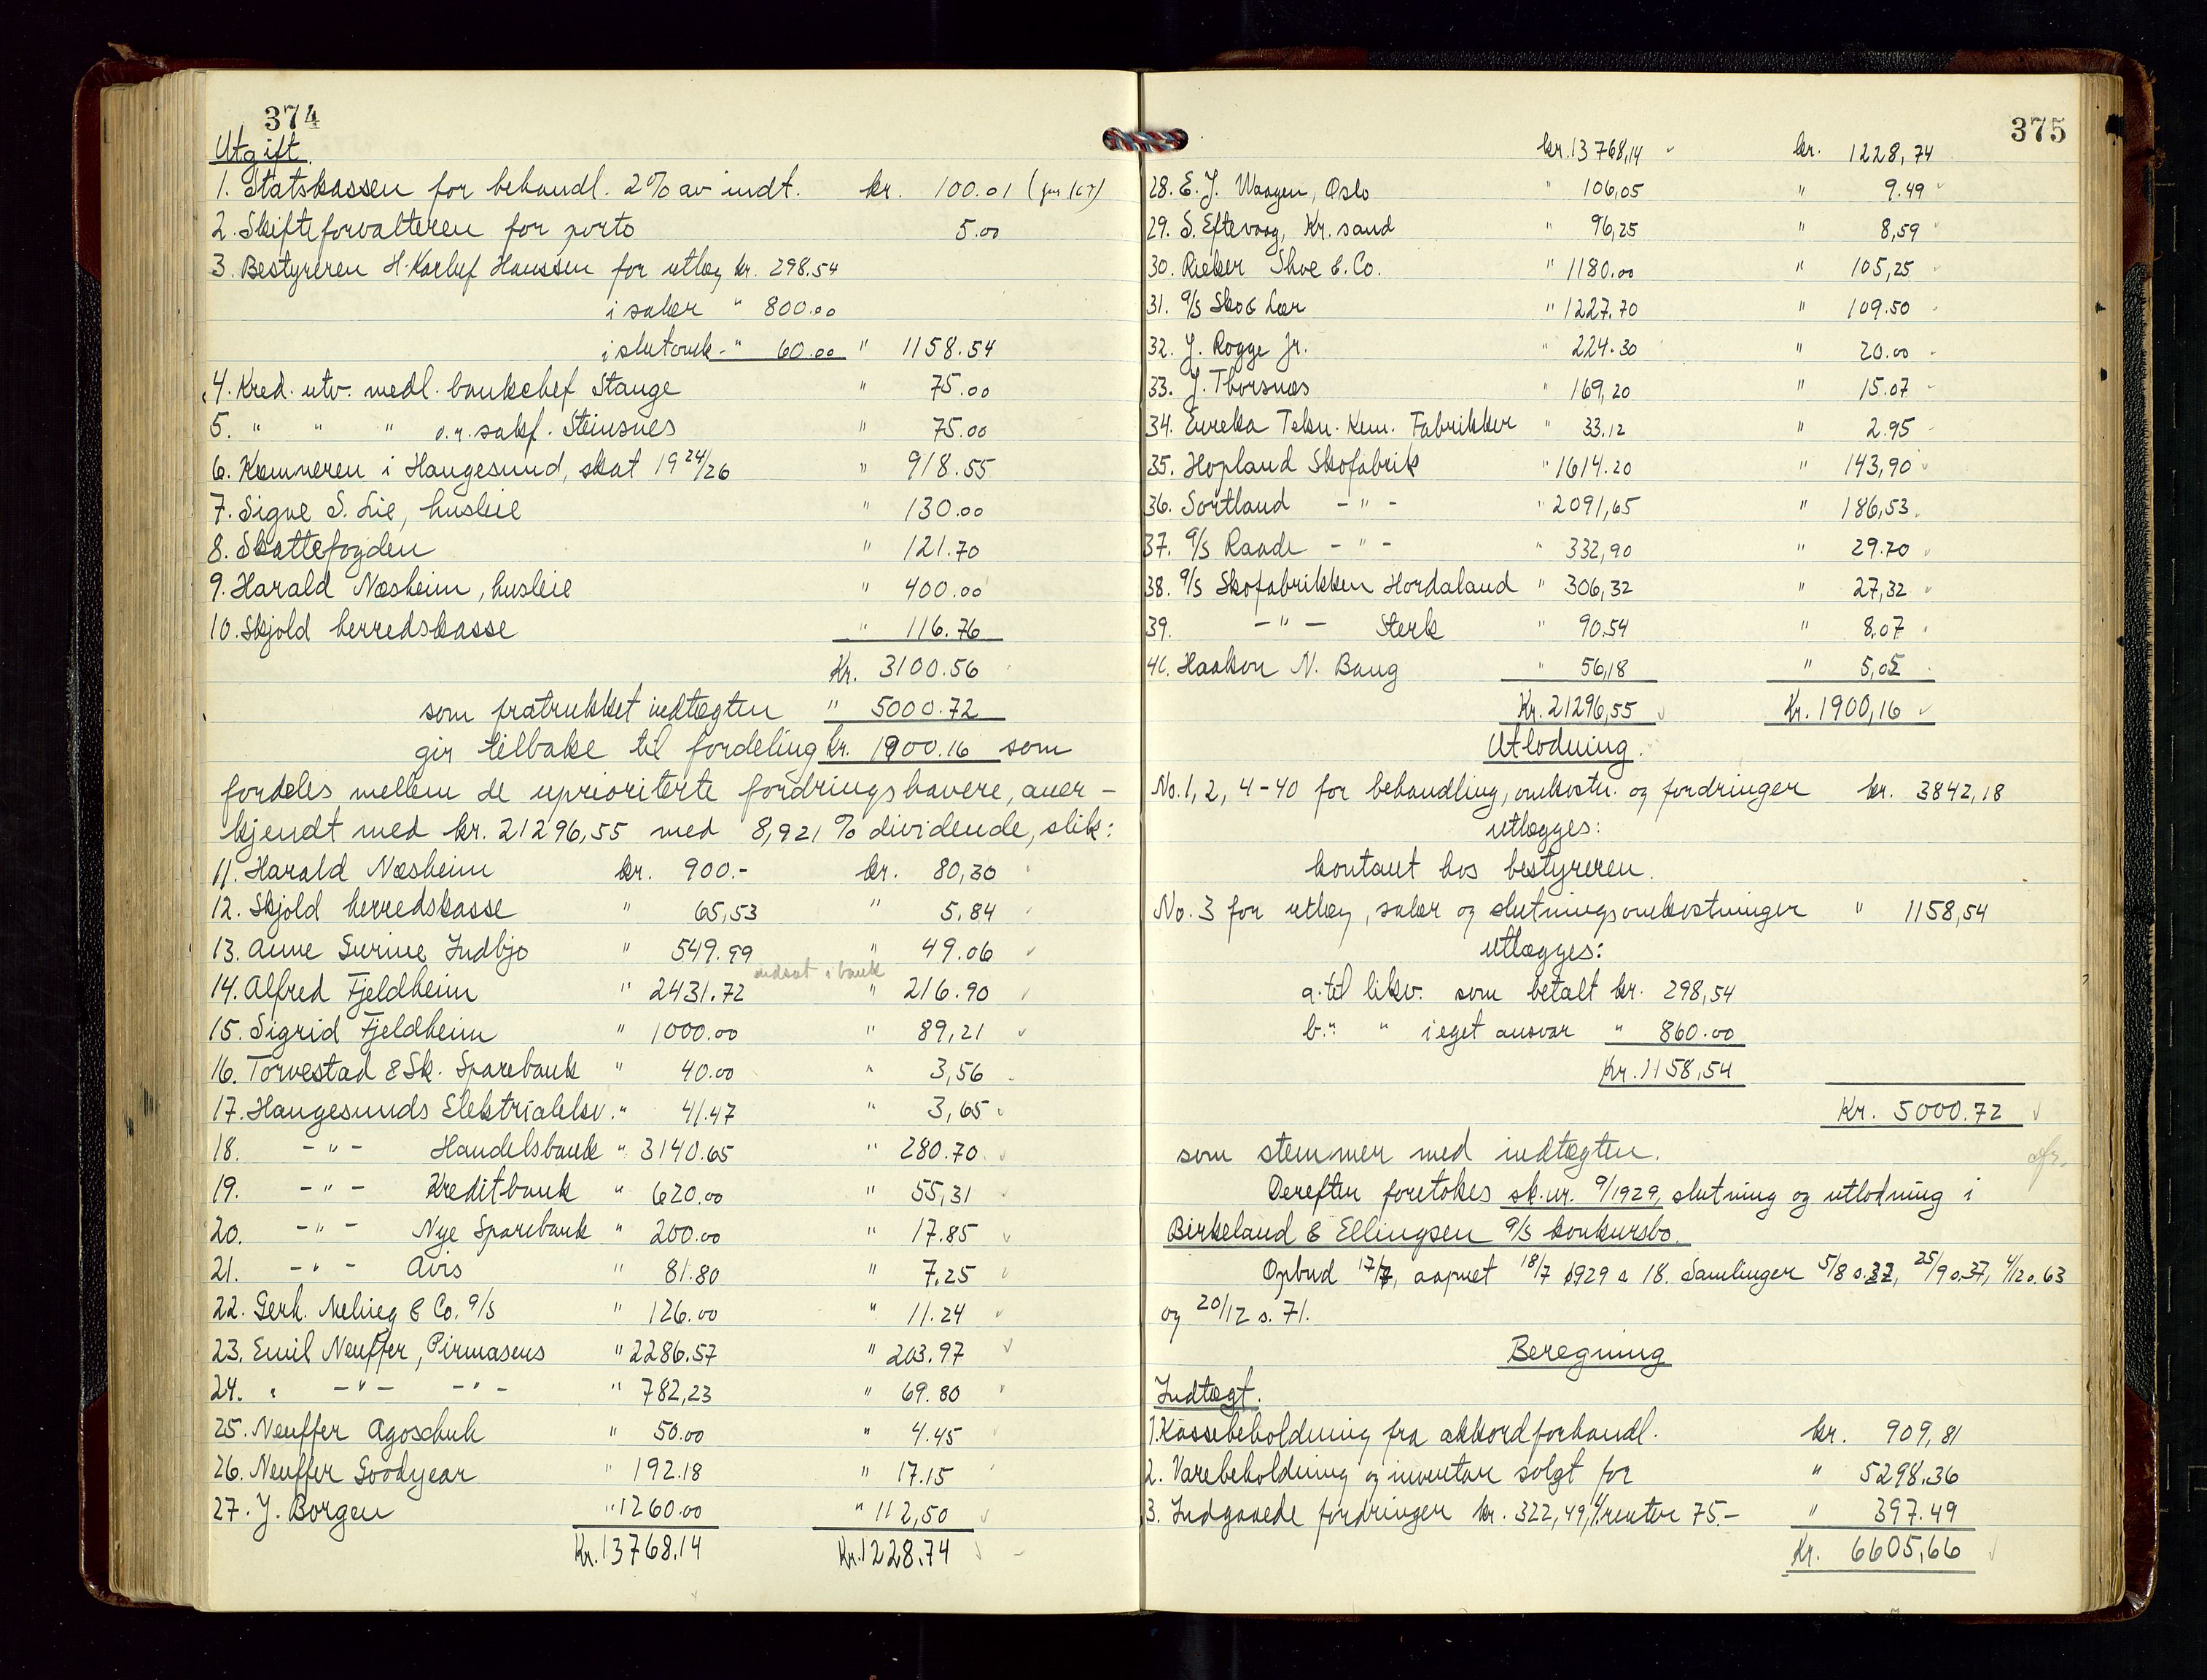 374
Utgift.
1. Statskassen for behandl. 2% av indt. kr. 100.01
2. Skifteforvalteren for porto 5.00
3. Bestyreren H. Karluf Hanssen for utlæg kr. 298.54
i salær " 800.00
i slutomk. " 60.00 " 1158.54
4. Kred. utv. medl. bankchef Stange " 75.00
5. " " " o.r.sakf. Steinsnes " 75.00
6. Kæmneren i Haugesund, skat 1924/26 " 918.55
7. Signe S. Lie, husleie " 130.00
8. Skattefogden " 121.70
9. Harald Næsheim, husleie " 400.00
10. Skjold herredskasse " 116.76
Kr. 3100.56
som fratrukket indtægten " 5000.72
gir tilbake til fordeling kr. 1900.16 som
fordeles mellem de uprioriterte fordringshavere, aner-
kjendt med kr. 21296,55 med 8,921 % dividende, slik:
11. Harald Næsheim kr. 900.- kr. 80,30
12. Skjold herredskasse " 65,53 " 5.84
13. Anne Serine Indbjo " 549.99 " 49.06
indsat i bank
14. Alfred Fjeldheim " 2431.72 " 216.90
15. Sigrid Fjeldheim " 1000.00 " 89,21
16. Torvestad & Sk. Sparebank " 40.00 " 3,56
17. Haugesunds Elektrialeksv. " 41.47 " 3,65
18. -"- Handelsbank " 3140.65 " 280.70
19. -"- Kreditbank " 620.00 " 55,31
20. -"- Nye Sparebank " 200.00 " 17.85
21. -"- Avis " 81.80 " 7,25
22. Gerh. & Co. A/S " 126.00 " 11.24
23. Emil Neuffer, Pirmasens " 2286.57 " 203.97
24. " -"- -"- " 782,23 " 69.80
25. Neuffer Agoschuh " 50.00 " 4.45
26. Neuffer Goodyear " 192.18 " 17.15
27. J. Borgen " 1260.00 " 112,50
Kr. 13768.14 Kr. 1228.74
375
kr. 13768,14 kr. 1228,74
28. E. J. Waagen, Oslo " 106,05 " 9.49
29. S. Eftevaag, Kr.sand " 96,25 " 8,59
30. Rieker Shoe & Co. " 1180.00 " 105,25
31. A/S Sko & Lær " 1227.70 " 109.50
32. J. Rogge jr. " 224.30 " 20.00
33. J. Thorsnæs " 169,20 " 15.07
34. Eureka Tekn. Kem. Fabrikker " 33.12 " 2.95
35. Hopland Skofabrik " 1614.20 " 143,90
36. Sortland -"- " 2091,65 " 186,53
37. A/S Raade -"- " 332,90 " 29.70
38. A/S Skofabrikken Hordaland " 306,32 " 27,32
39. -"- Sterk " 90.54 " 8,07
40. Haakon N. Baug " 56,18 " 5,05
Kr. 21296,55 Kr. 1900,16
Utlodning.
No. 1, 2, 4-40 for behandling, omkostn. og fordringer kr. 3842,18
utlægges:
kontant hos bestyreren.
No. 3 for utlæg, salær og slutningsomkostninger " 1158,54
utlægges:
a. til likv. som betalt kr. 298,54
b. " " i eget ansvar " 860.00
Kr. 1158,54
Kr. 5000.72
som stemmer med indtægten.
Derefter foretokes sk.nr. 9/1929, slutning og utlodning i
Birkeland & Ellingsen A/S konkursbo.
Opbud 17/7, aapnet 18/7 1929 s. 18. Samlinger 5/8 s.27, 25/9 s.37, 4/12 s. 63
og 20/12 s. 71.
Beregning
Indtægt.
1. Kassebeholdning fra akkordforhandl. kr. 909,81
2. Varebeholdning og inventar solgt for " 5298,36
3. Indgaaede fordringer kr. 322,49, renter 75.- " 397.49
Kr. 6605,66